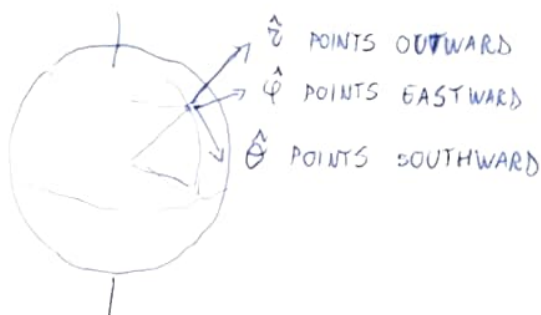 r̂ POINTS OUTWARD
φ̂ POINTS EASTWARD
θ̂ POINTS SOUTHWARD